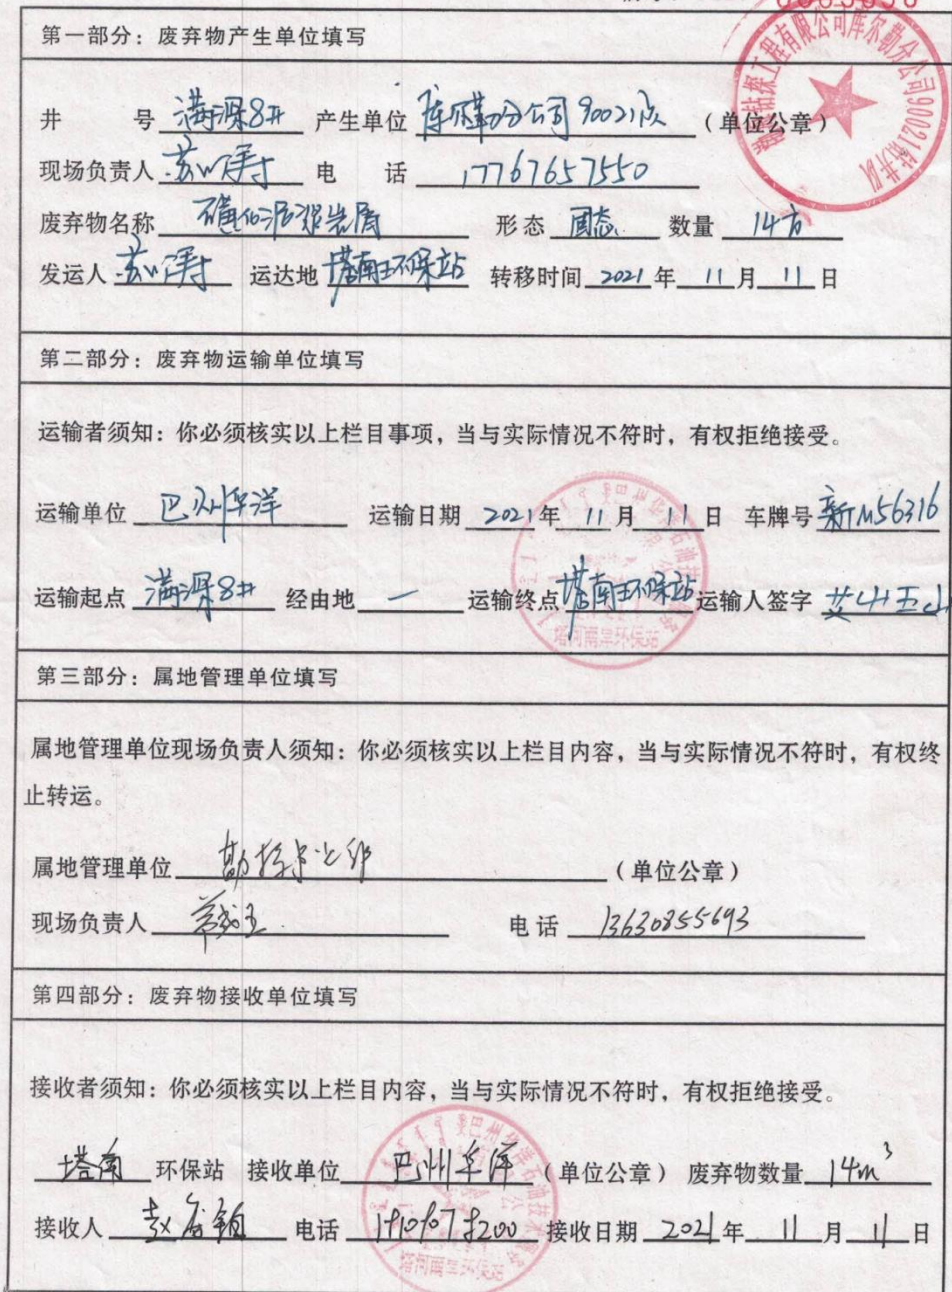 第一部分：废弃物产生单位填写
井 号 满深8井 产生单位 库尔勒分公司90021队 （单位公章）
现场负责人 电 话 17767657550
废弃物名称 磺化泥浆岩屑 形态 固态 数量 14方
发运人 运达地 塔南环保站 转移时间 2021 年 11 月 11 日
第二部分：废弃物运输单位填写
运输者须知：你必须核实以上栏目事项，当与实际情况不符时，有权拒绝接受。
运输单位 巴州华洋 运输日期 2021 年 11 月 11 日 车牌号 新M56316
运输起点 满深8井 经由地 一 运输终点 塔南环保站 运输人签字
塔河南岸环保站
第三部分：属地管理单位填写
属地管理单位现场负责人须知：你必须核实以上栏目内容，当与实际情况不符时，有权终
止转运。
属地管理单位 （单位公章）
现场负责人 电话 13630855693
第四部分：废弃物接收单位填写
接收者须知：你必须核实以上栏目内容，当与实际情况不符时，有权拒绝接受。
塔南 环保站 接收单位 巴州华洋 （单位公章） 废弃物数量 14m³
接收人 电话 接收日期 2021 年 11 月 11 日
塔河南岸环保站